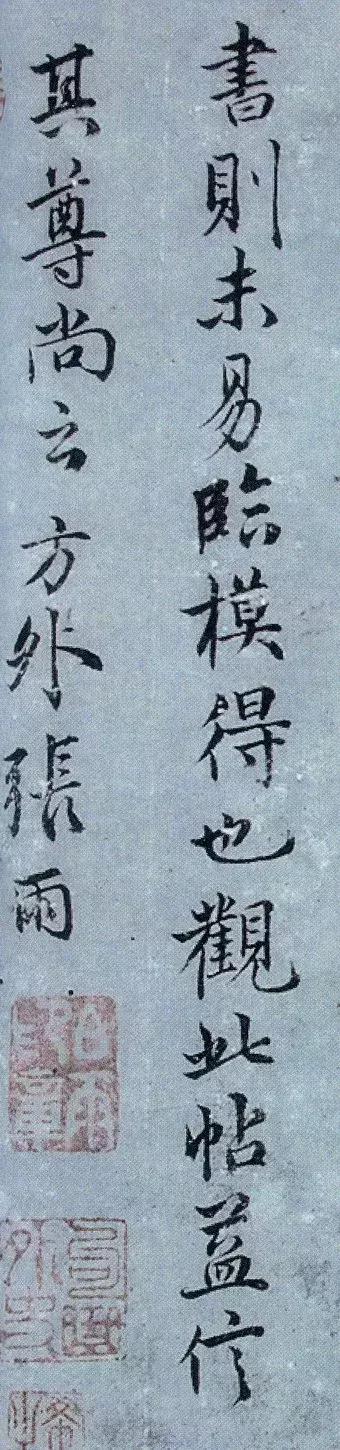 書則未易臨模得也觀此帖益信
其尊尚云方外張雨